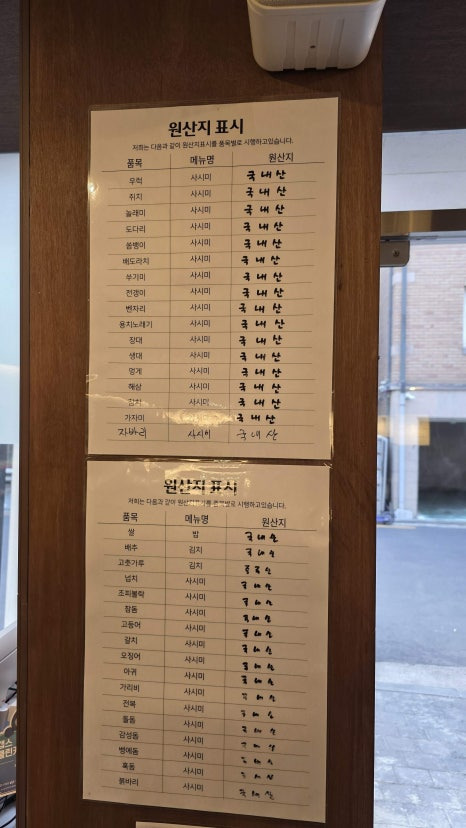 원산지 표시
저희는 다음과 같이 원산지표시를 품목별로 시행하고있습니다.
품목 메뉴명 원산지
우럭 사시미 국내산
쥐치 사시미 국내산
놀래미 사시미 국내산
도다리 사시미 국내산
쏨뱅이 사시미 국내산
배도라치 사시미 국내산
쑤기미 사시미 국내산
전갱이 사시미 국내산
벤자리 사시미 국내산
용치노래기 사시미 국내산
장대 사시미 국내산
생대 사시미 국내산
멍게 사시미 국내산
해삼 사시미 국내산
사시미 국내산
가자미 사시미 국내산
자바리 사시미 국내산
원산지 표시
저희는 다음과 같이 원산지표시를 품목별로 시행하고있습니다.
품목 메뉴명 원산지
쌀 밥 국내산
배추 김치 국내산
고춧가루 김치 중국산
넙치 사시미 국내산
조피볼락 사시미 국내산
참돔 사시미 국내산
고등어 사시미 국내산
갈치 사시미 국내산
오징어 사시미 국내산
아귀 사시미 국내산
가리비 사시미 국내산
전복 사시미 국내산
돌돔 사시미 국내산
감성돔 사시미 국내산
벵에돔 사시미 국내산
혹돔 사시미 국내산
붉바리 사시미 국내산